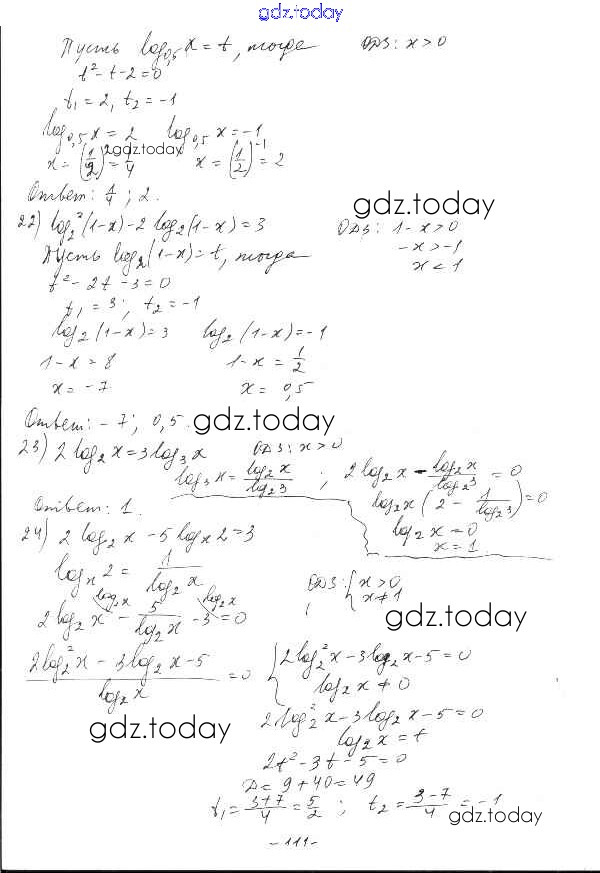 gdz.today
Пусть log₀,₅ x = t, тогда ОДЗ: x > 0
t² - t - 2 = 0
t₁ = 2, t₂ = -1
log₀,₅ x = 2 log₀,₅ x = -1
x = (1/2)² = 1/4 x = (1/2)⁻¹ = 2
gdz.today
Ответ: 1/4; 2.
gdz.today
22) log₂²(1-x) - 2 log₂(1-x) = 3 ОДЗ: 1 - x > 0
-x > -1
x < 1
Пусть log₂(1-x) = t, тогда
t² - 2t - 3 = 0
t₁ = 3; t₂ = -1
log₂(1-x) = 3 log₂(1-x) = -1
1 - x = 8 1 - x = 1/2
x = -7 x = 0,5
Ответ: -7; 0,5.
gdz.today
23) 2 log₂ x = 3 log₃ x ОДЗ: x > 0
log₃ x = log₂ x / log₂ 3 ; 2 log₂ x - log₂ x / log₂ 3 = 0
log₂ x (2 - 1 / log₂ 3) = 0
log₂ x = 0
x = 1
Ответ: 1.
24) 2 log₂ x - 5 logₓ 2 = 3
logₓ 2 = 1 / log₂ x
ОДЗ: { x > 0
x ≠ 1
log₂x log₂x
2 log₂ x - 5 / log₂ x - 3 = 0
gdz.today
(2 log₂² x - 3 log₂ x - 5) / log₂ x = 0
{ 2 log₂² x - 3 log₂ x - 5 = 0
log₂ x ≠ 0
gdz.today
2 log₂² x - 3 log₂ x - 5 = 0
log₂ x = t
2t² - 3t - 5 = 0
D = 9 + 40 = 49
t₁ = (3+7)/4 = 5/2 ; t₂ = (3-7)/4 = -1
gdz.today
- 111 -